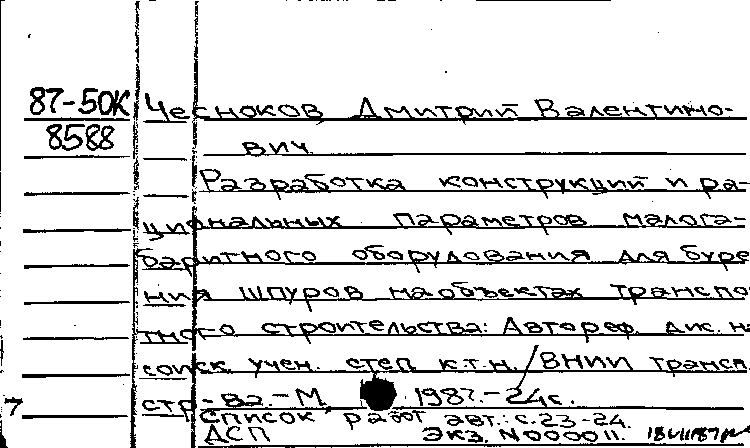 87-50К Чесноков, Дмитрий Валентино-
8588 вич.
Разработка конструкций и ра-
циональных параметров малога-
баритного оборудования для буре
ния шпуров на объектах транспо
тного строительства: Автореф. дис. на
соиск. учен. степ. к.т.н. / ВНИИ трансп.
7 стр-ва. - М., 1987. - 24с.
Список работ авт.: с.23-24.
ДСП Экз. N00011